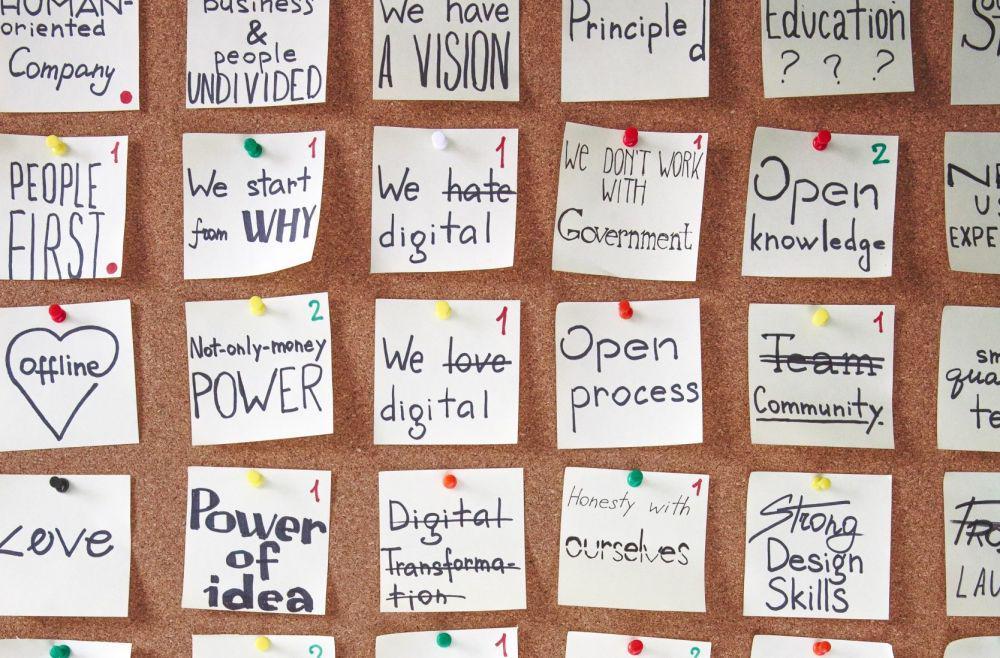 HUMAN-
oriented
Company
Business
&
people
UNDIVIDED
We have
A VISION
Principle
d
Education
? ? ?
1
PEOPLE
FIRST
1
We start
from WHY
1
We hate
digital
1
We DON'T WORK
WITH
Government
2
Open
knowledge
offline
2
Not-only-money
POWER
1
We love
digital
Open
process
1
Team
Community
Love
1
Power
of
idea
Digital
Transforma-
tion
1
Honesty with
ourselves
Strong
Design
Skills
2
1
2